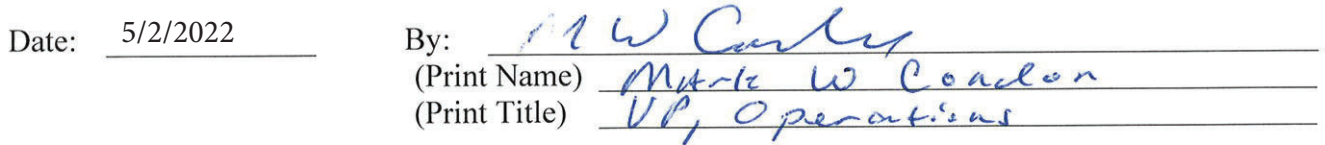 Date: 5/2/2022 By: M W
(Print Name) Mark W Condon
(Print Title) VP, Operations